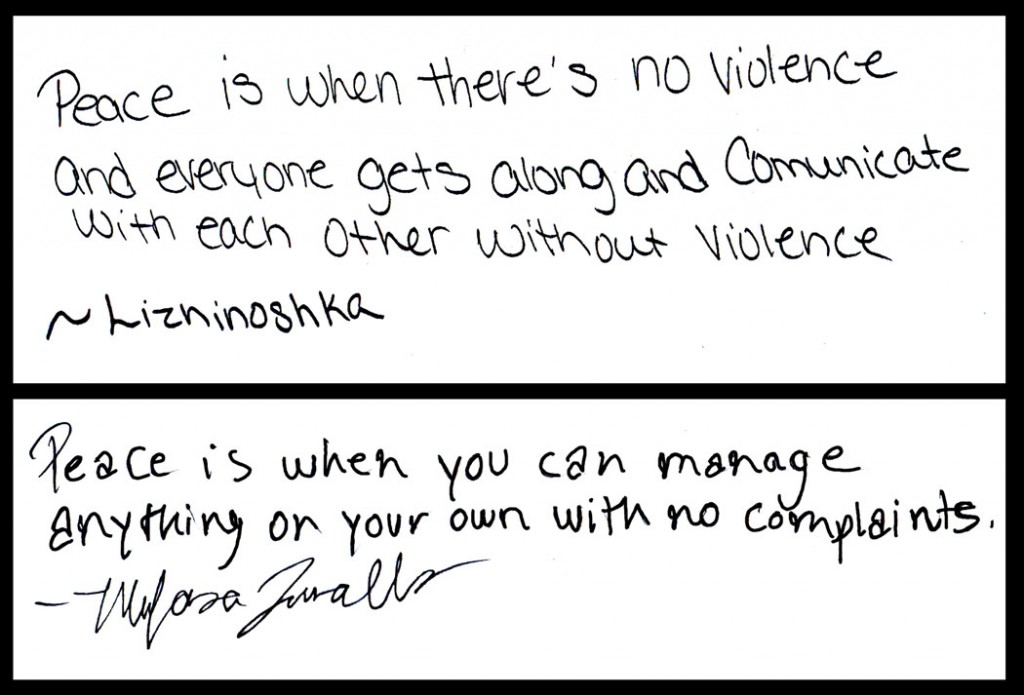 Peace is when there's no violence
and everyone gets along and Comunicate
with each other without violence
~Lizninoshka
Peace is when you can manage
anything on your own with no complaints.